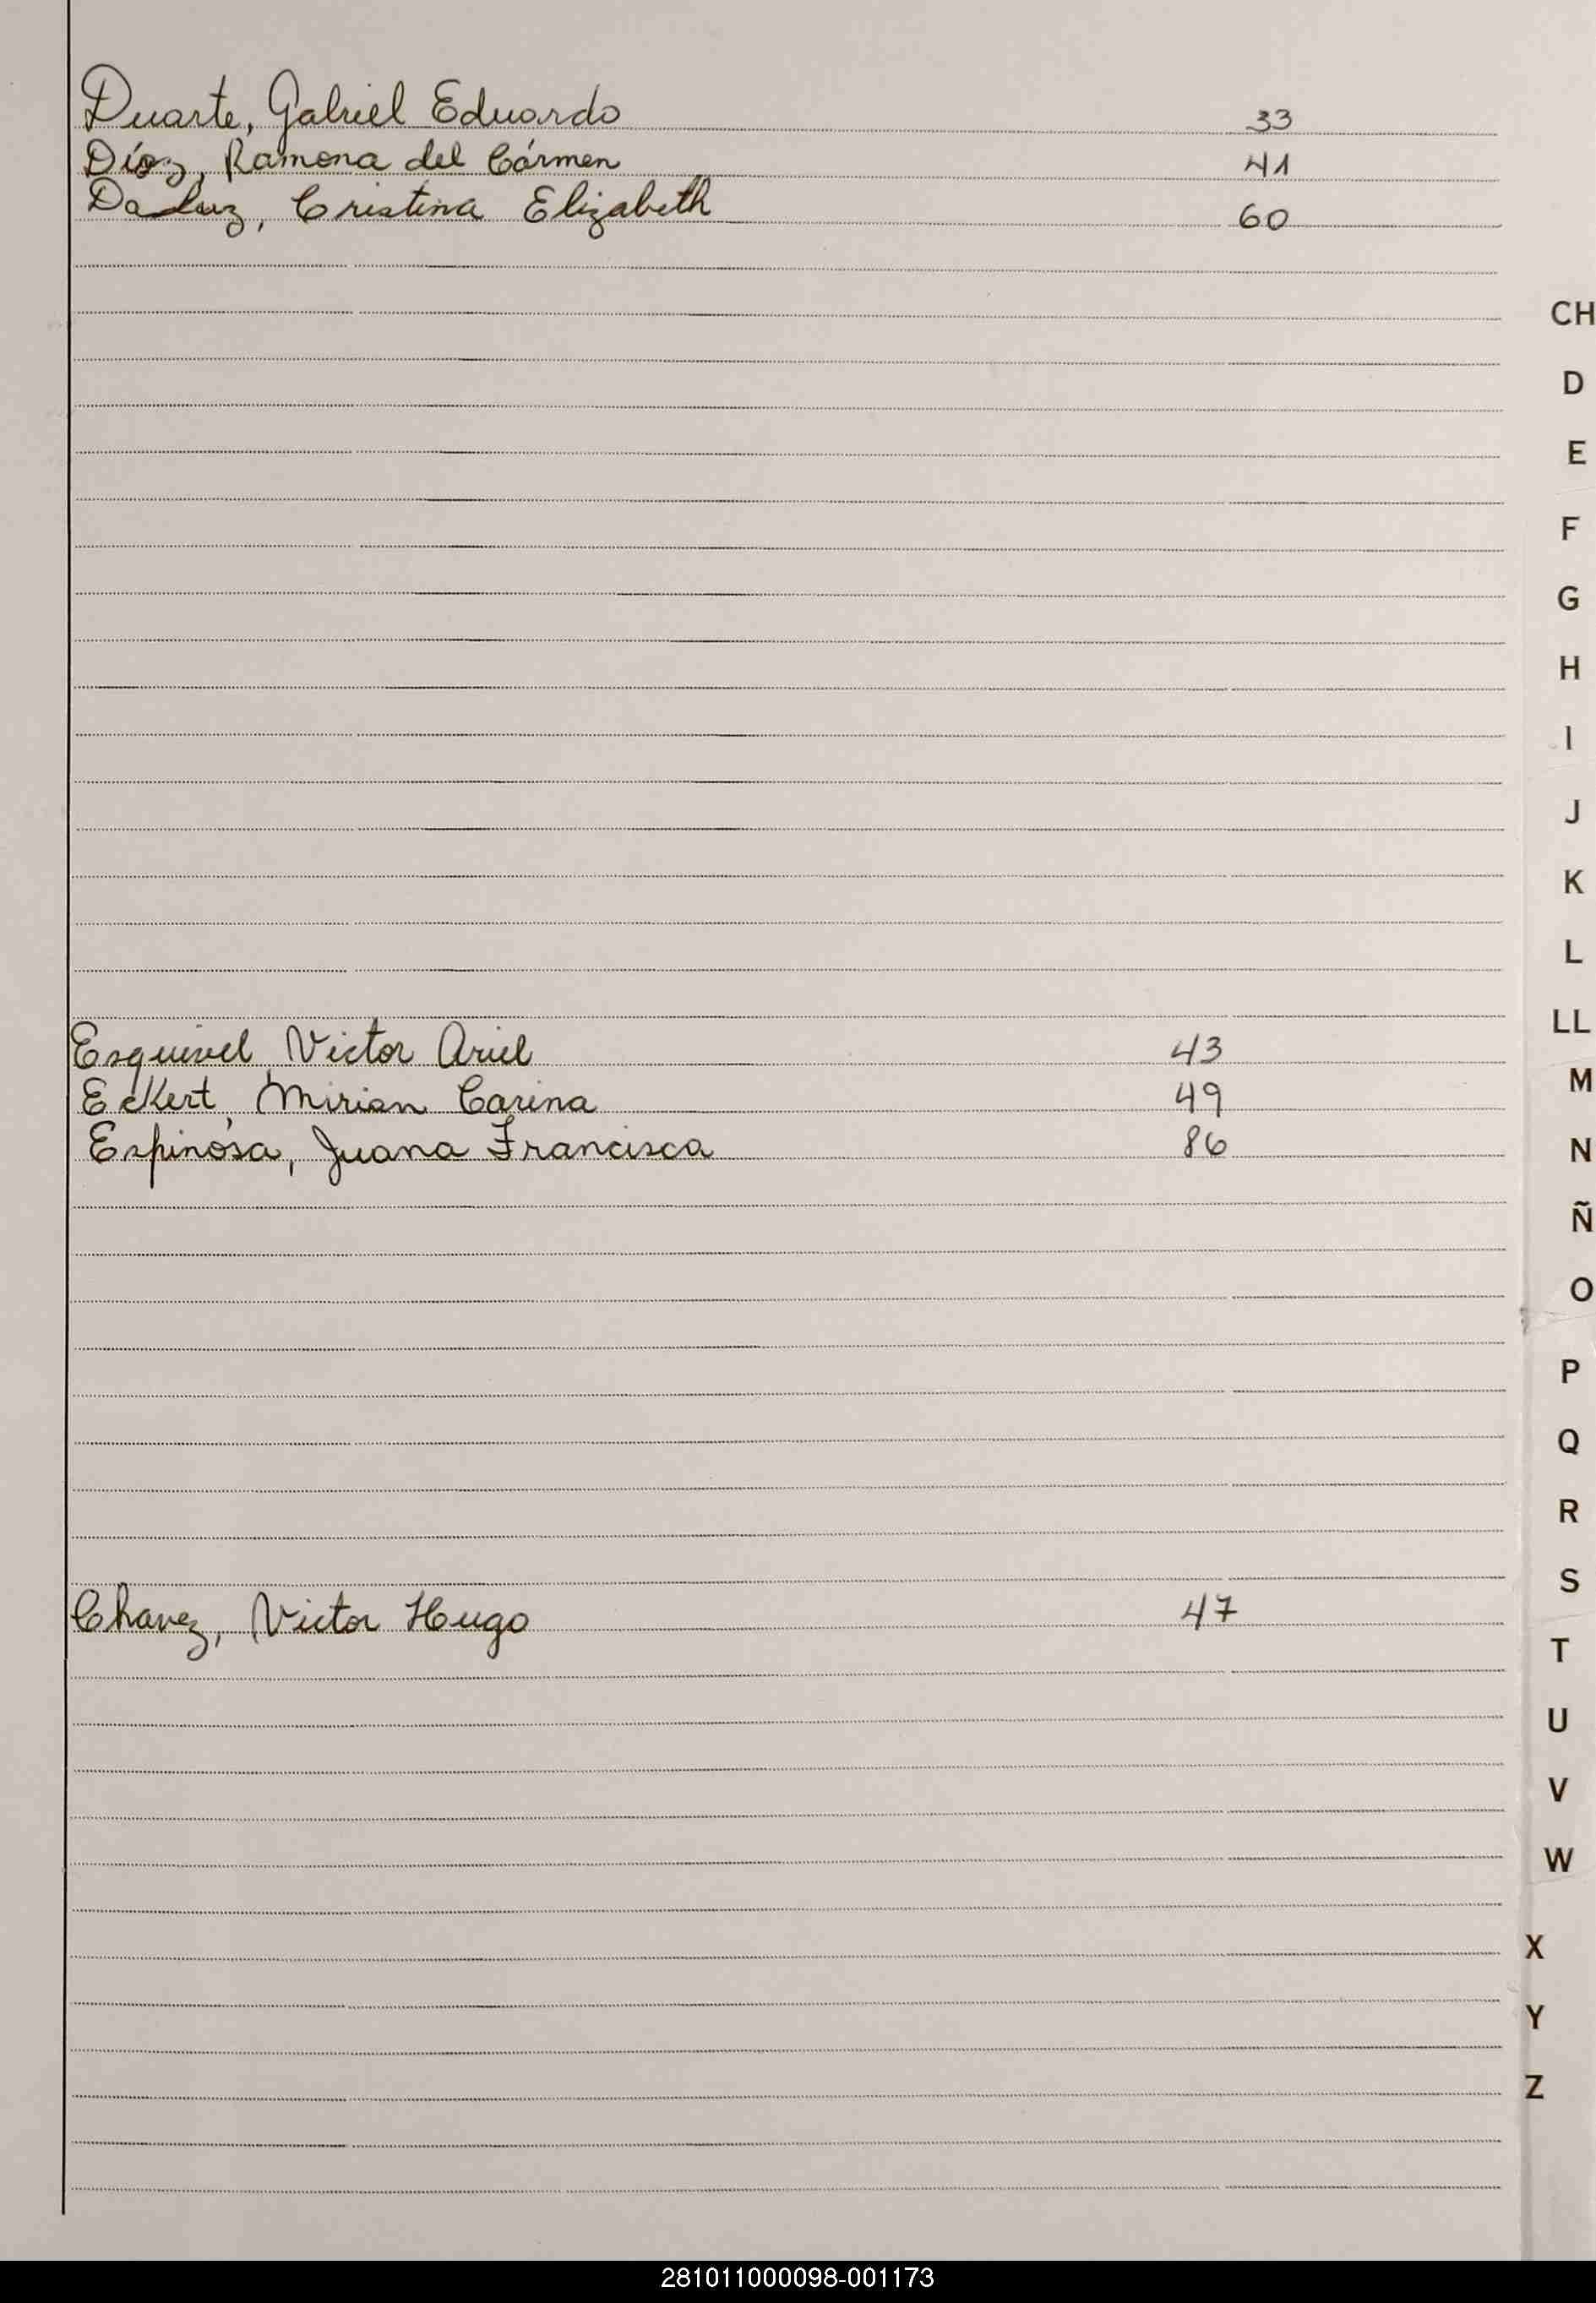 Duarte, Gabriel Eduardo 33
Díaz, Ramona del Cármen 41
Da Luz, Cristina Elizabeth 60
CH
D
E
F
G
H
I
J
K
L
LL
Esquivel, Victor Ariel 43
M
Eckert, Mirian Carina 49
Espinósa, Juana Francisca 86
N
Ñ
O
P
Q
R
S
Chavez, Victor Hugo 47
T
U
V
W
X
Y
Z
281011000098-001173